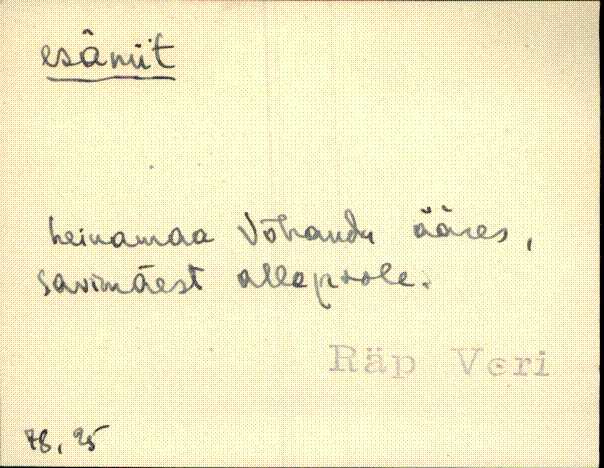 esâmiit
heinamaa Võhandu ääres,
savimäest allapoole.
Räp Veri